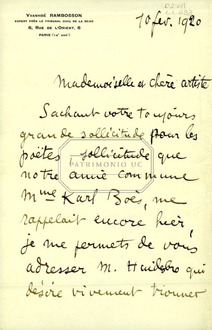 YVANHOÉ RAMBOSSON
EXPERT PRÈS LE TRIBUNAL CIVIL DE LA SEINE
6, RUE DE L'ORIENT, 6
PARIS
10 fév. 1920
Mademoiselle et chère artiste
Sachant votre toujours
grande sollicitude pour les
poètes, sollicitude que
notre amie commune
Mme Karl Boès, me
rappelait encore hier,
je me permets de vous
adresser M. Huidobro qui
désire vivement trouver
PATRIMONIO UC